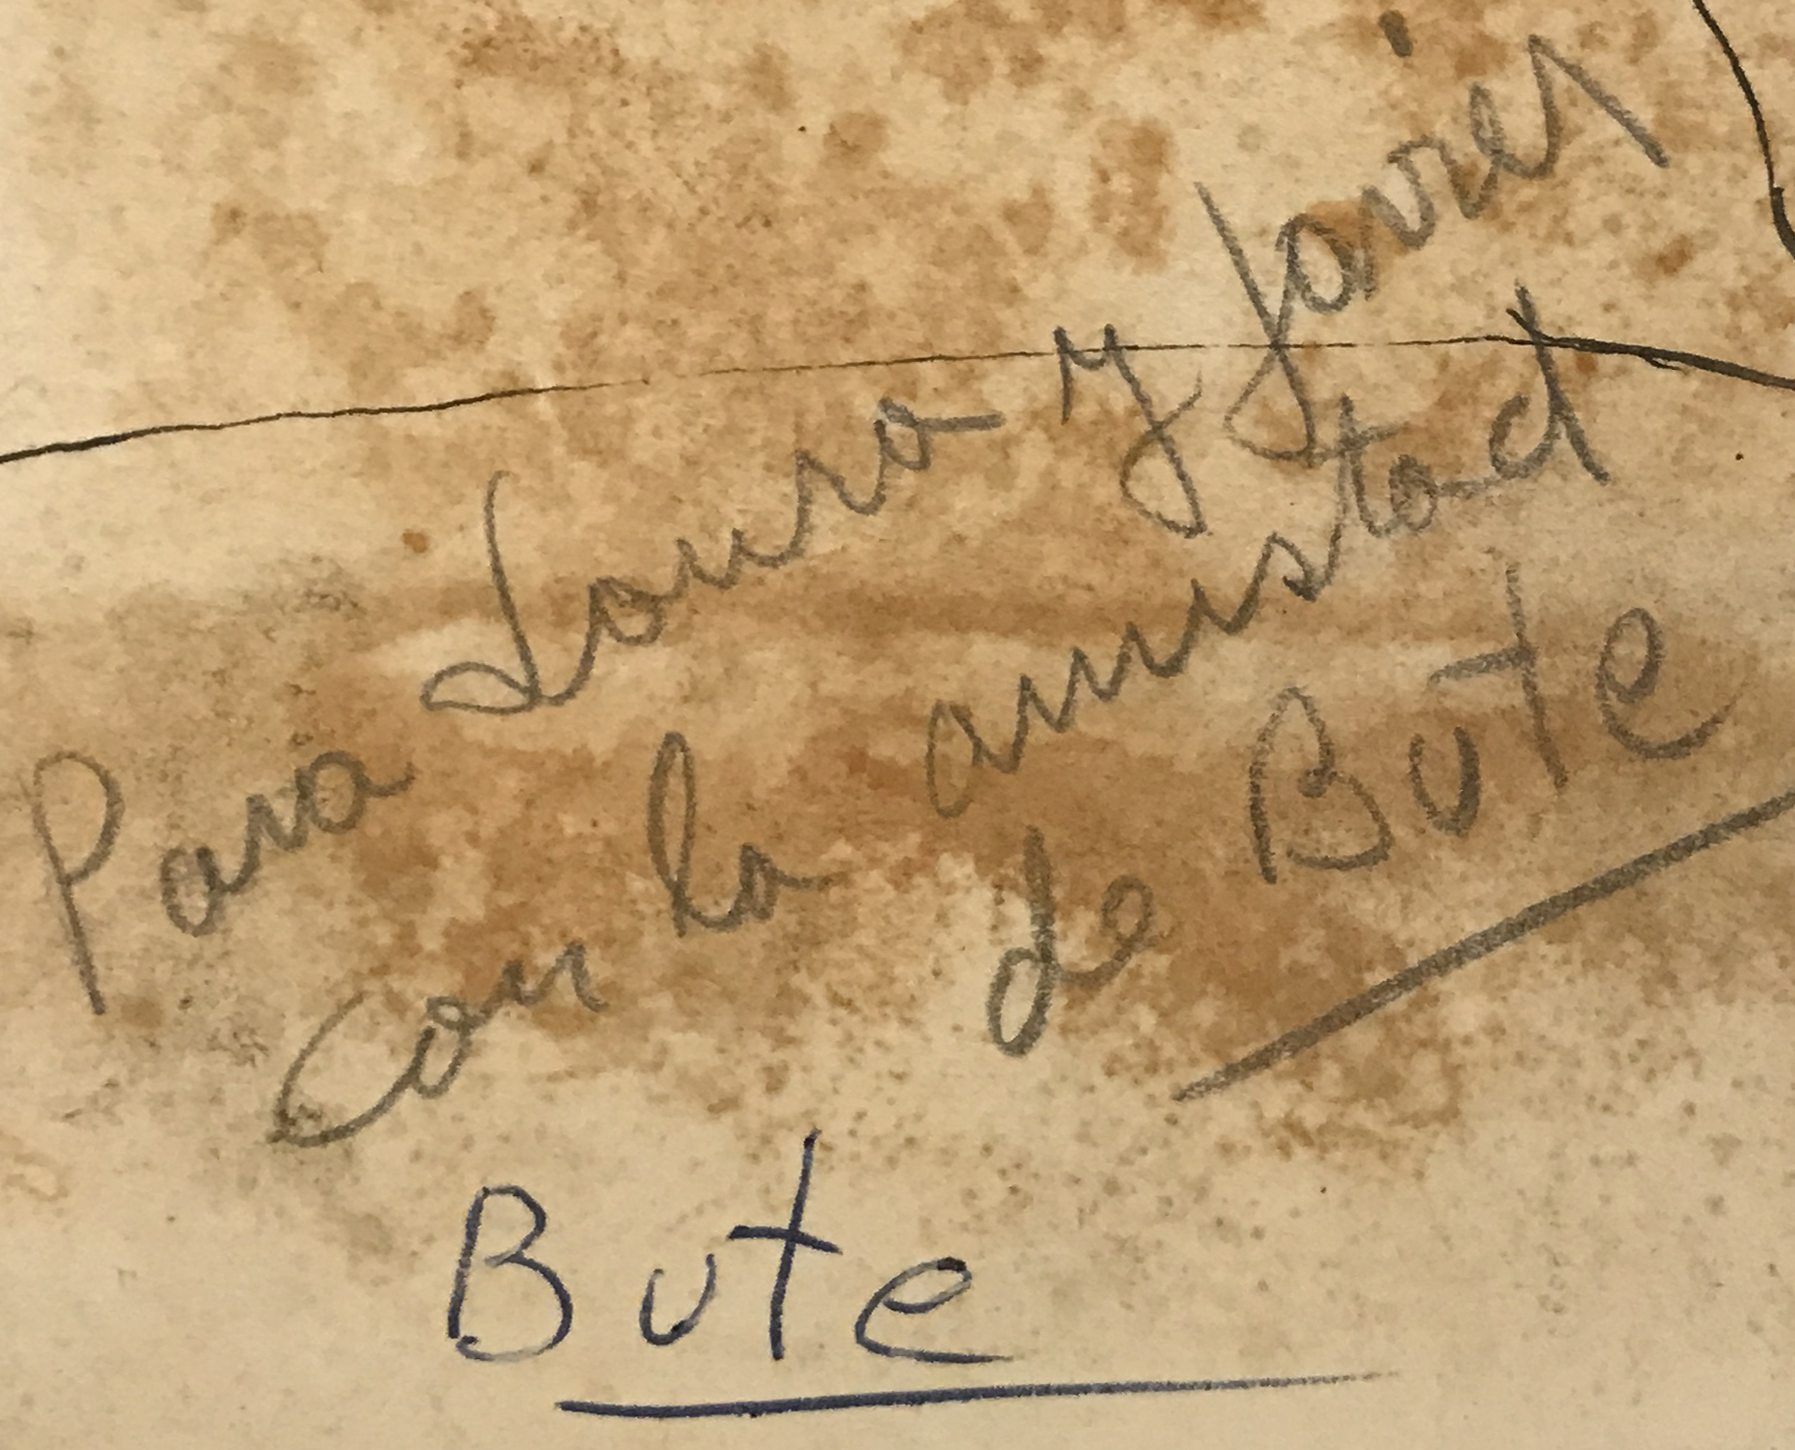 Para Laura y Javier
con la amistad
de Bute
Bute